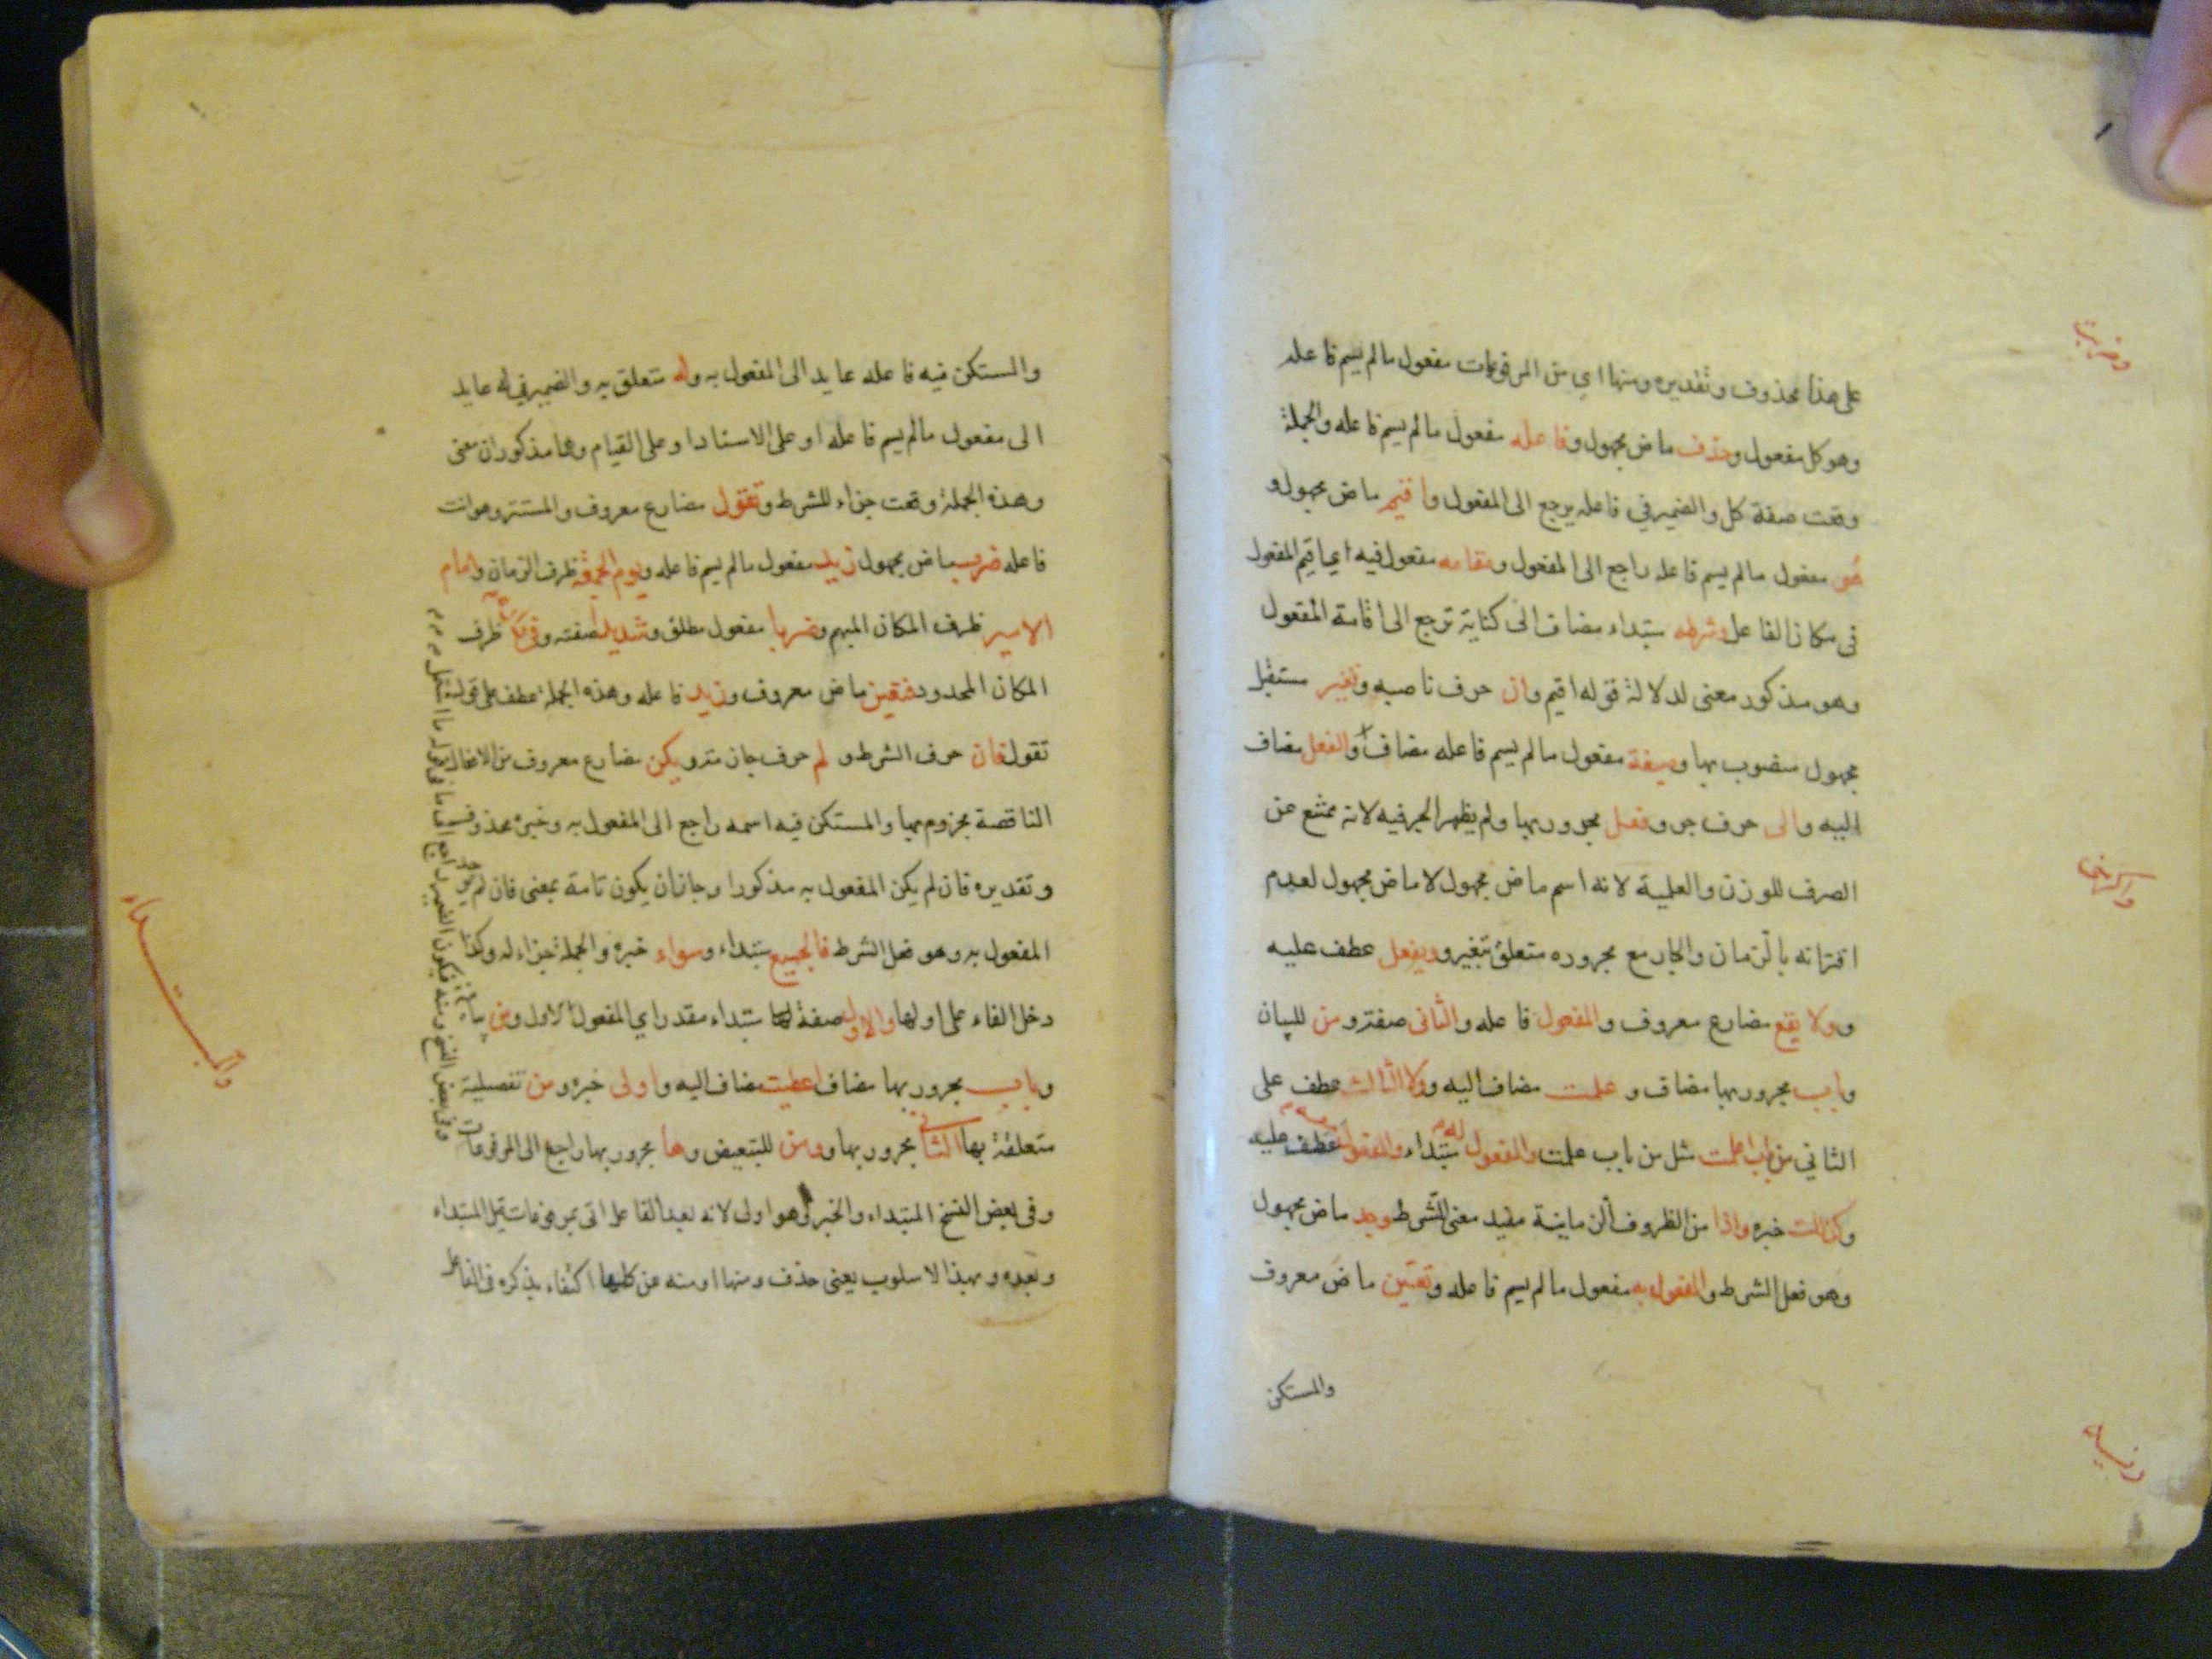 على هذا محذوف وتقديره ومنها اي من المرفوعات مفعول مالم يسم فاعله
وهو كل مفعول وحذف ماض مجهول وفاعله مفعول مالم يسم فاعله والجملة
وقعت صفة كل والضمير في فاعله يرجع الى المفعول واقيم ماض مجهول و
هو مفعول مالم يسم فاعله راجع الى المفعول ومقامه مفعول فيه اي اقيم المفعول
في مكان الفاعل وشرطه مبتداء مضاف الى كناية ترجع الى اقامة المفعول
وهو مذكور معنى لدلالة قوله اقيم وان حرف ناصبه وتغير مستقبل
مجهول منصوب بها وصيغة مفعول مالم يسم فاعله مضاف والفعل مضاف
اليه والى حرف جر وفعل مجرور بها ولم يظهر الجر فيه لانه ممتنع عن
الصرف للوزن والعلمية لانه اسم ماض مجهول لا ماض مجهول لعدم
اقترانه بالزمان والجار مع مجروره متعلق بتغير وويفعل عطف عليه
وولا يقع مضارع معروف والمفعول فاعله والثانى صفته ومن للبيان
وباب مجرور بها مضاف وعلمت مضاف اليه وولا الثالث عطف على
الثاني من باب اعلمت مثل من باب علمت والمفعول له مبتداء والمفعول معه عطف عليه
وكذلك خبره واذا من الظروف الزمانية مفيد معنى الشرط وجد ماض مجهول
وهو فعل الشرط والمفعول به مفعول مالم يسم فاعله وتعين ماض معروف
والمستكن
والمستكن فيه فاعله عايد الى المفعول به وله متعلق به والضمير في له عايد
الى مفعول مالم يسم فاعله او على الاسناد او على القيام وهما مذكوران معنى
وهذه الجملة وقعت جزاء للشرط وتقول مضارع معروف والمستتر وهو انت
فاعله ضرب ماض مجهول زيد مفعول مالم يسم فاعله ويوم الجمعة ظرف الزمان وامام
الامير ظرف المكان المبهم وضربا مفعول مطلق وشديدا صفته وفي داره ظرف
المكان المحدود فتعين ماض معروف وزيد فاعله وهذه الجملة عطف على قوله
تقول فان حرف الشرط و لم حرف جازمة ويكن مضارع معروف من الافعال
الناقصة مجزوم بها والمستكن فيه اسمه راجع الى المفعول به وخبره محذوف
وتقديره فان لم يكن المفعول به مذكورا وجاز ان يكون تامة بمعنى فان لم يوجد
المفعول به وهو فعل الشرط فالجميع مبتداء وسواء خبره والجملة جزاء له ولذا
دخل الفاء على اولها والاول صفة مبتداء مقدر اي المفعول الاول ومن
وباب مجرور بها مضاف اعطيت مضاف اليه واولى خبره ومن تفصيلية
متعلقة بها الثاني مجرور بها وومن للتبعيض وها مجرور بها راجع الى المرفوعات
وفي بعض النسخ المبتداء والخبر هو اولى لانه بعد الفاعل اتى بمرفوعات قبل المبتداء
وبعده وبهذا الاسلوب يعنى حذف ومنها او منه عن كلها اكتفاء بذكره في الفاعل
والمبتداء